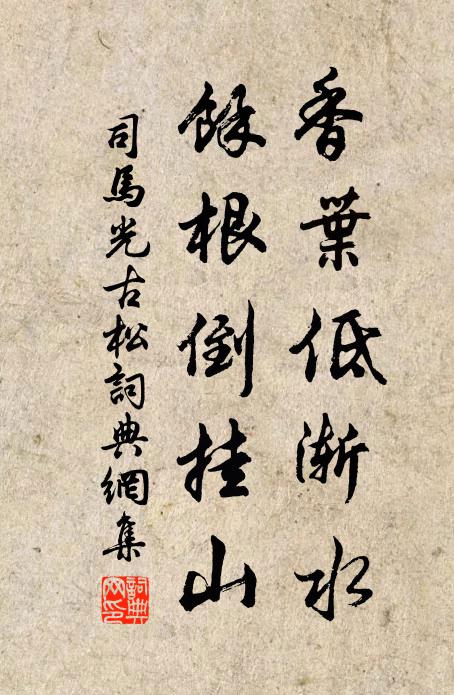 香葉低漸水
餘根倒挂山
司馬光古松詞典網集
詞典网印